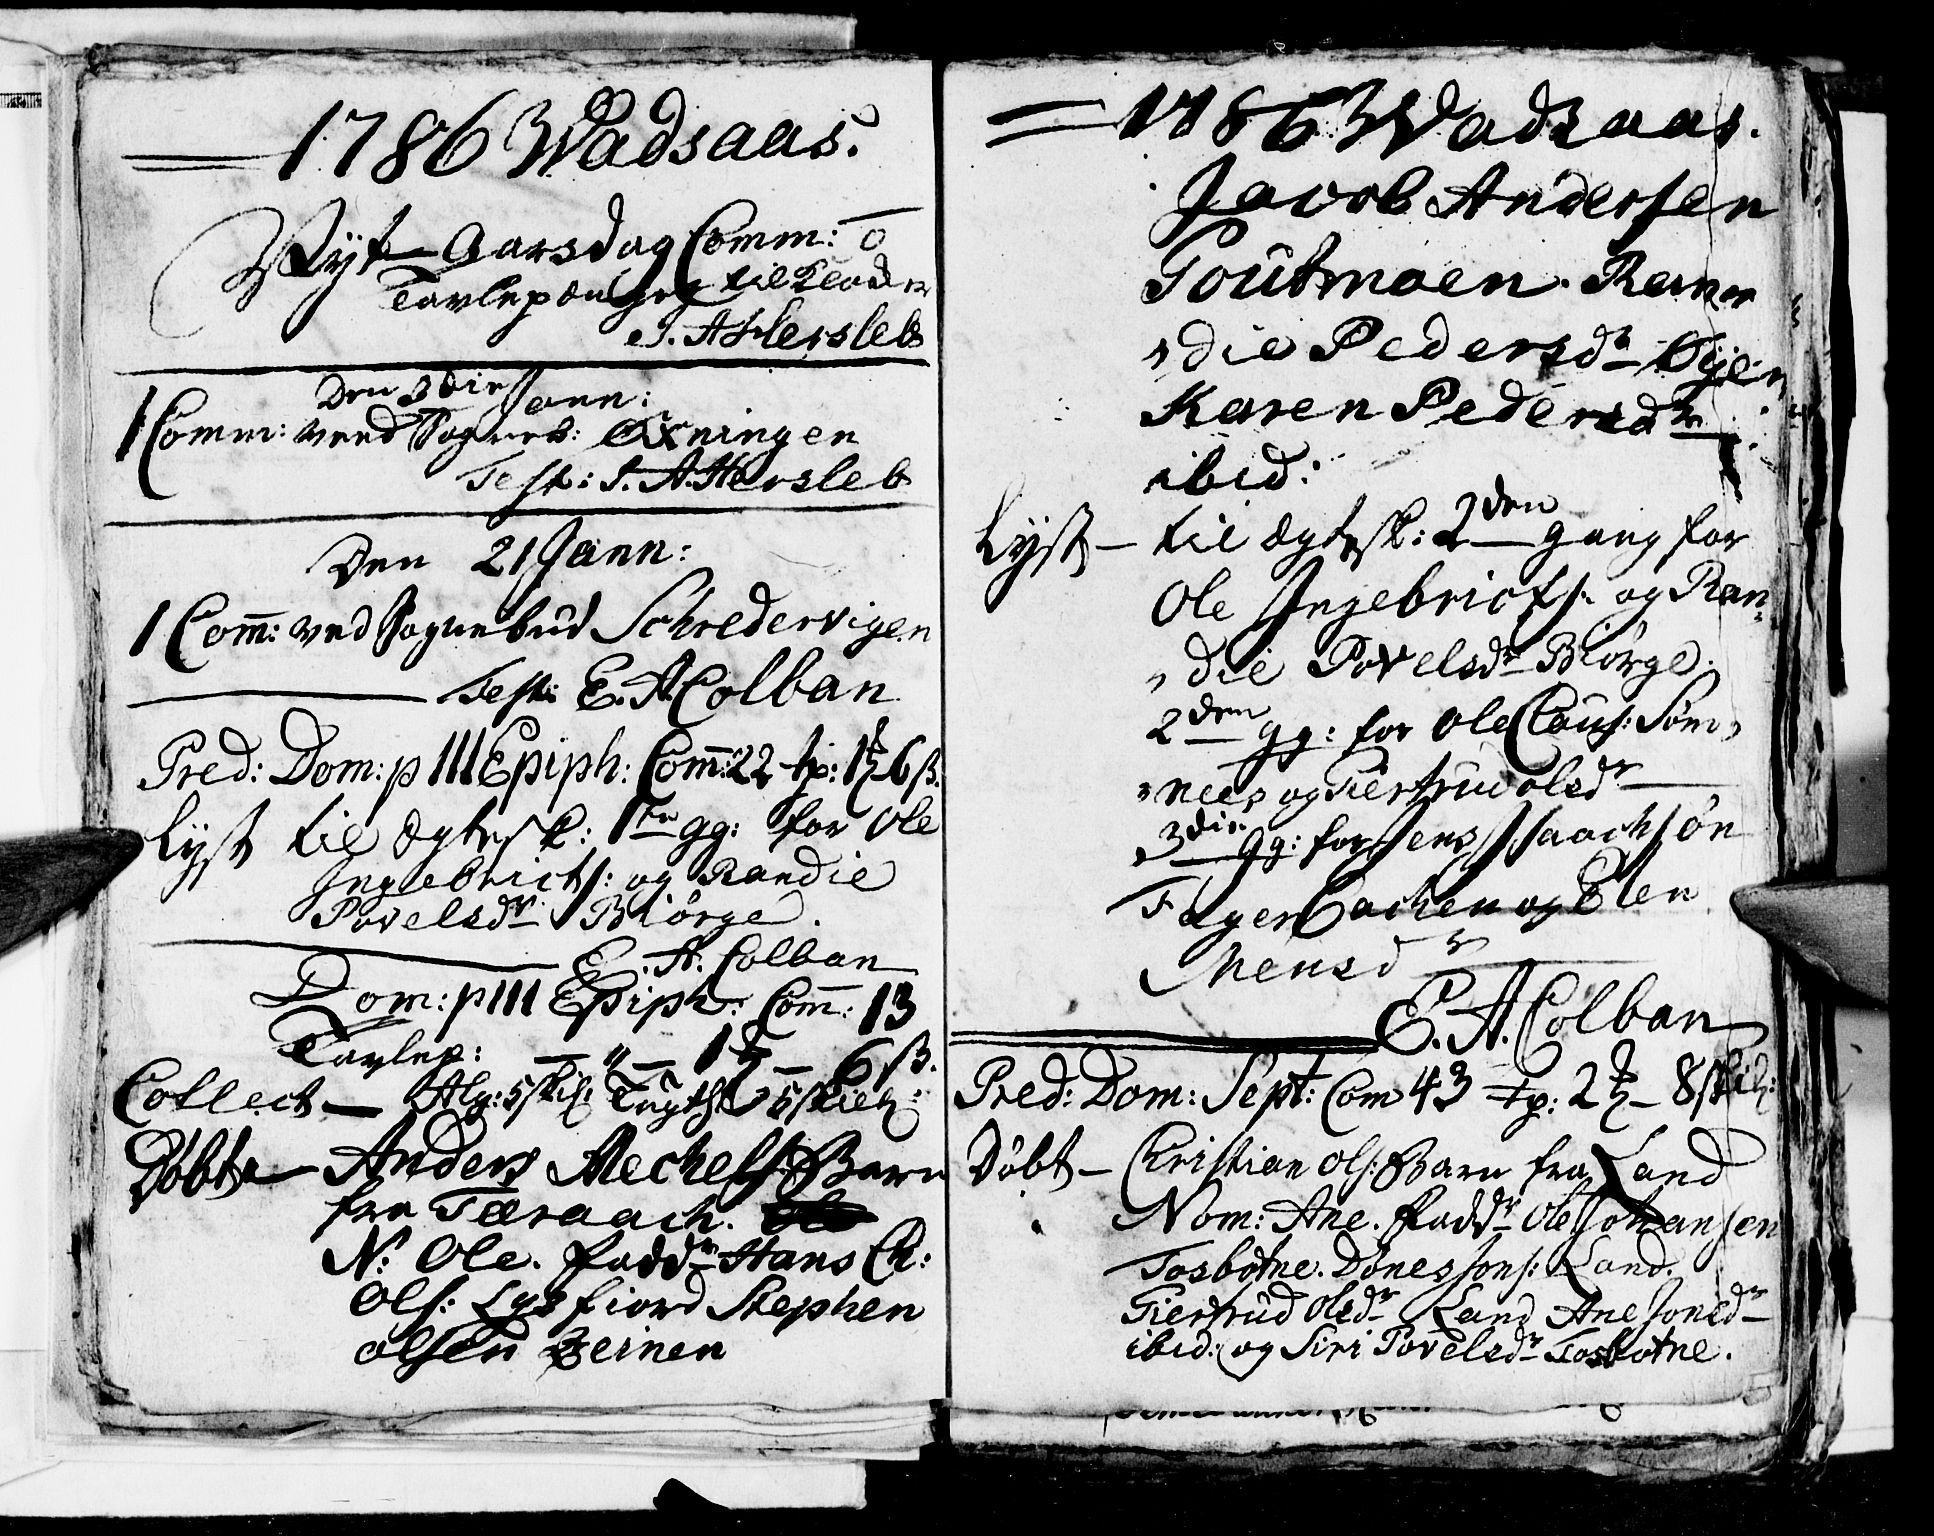 1786 Wadsaas.
Nyt Aarsdag Comm: 0
Tavlepenger til Klocker
J. A. Hersleb
Den 3die Jann:
1 Comm: veed Sogneb: Øxningen
Test: J. A. Hersleb
Den 21 Jann:
1 Com̄: ved Sognebud Schredervigen
Test: E. A. Colban
Pred: Dom: p III Epiph: Com̄: 22 tp: 1 6 ß.
Lyst til Ægtesk: 1te gg: for Ole
Ingebricts: og Randie
Povelsdr Biørge.
E. A. Colban
Dom: p III Epiph: Com̄: 13
Tavlep: — " — 1 — 6 ß.
Collect — Alg: 5 skil: Tugth 5 skil:
Døbte — Anders Mechels: Barn
fra Teraach.
N: Ole. Faddr Hans Ch:
Ols: Lysfiord Stephen
olsen Zeinen
= 1786 Wadsaas.
Jacob Andersen
Toutmoen. Ran
die Pedersdr Øyen
Karen Pedersdr
ibid:
Lyst — til Ægtesk: 2den gang for
Ole Ingebricts: og Ran
die Povelsdr Biørge.
2den gg: for Ole Claus: Søm
nes og Giertrud olsdr
3die gg: for Jens Isaachsøn
Fagerbachen og Elen
Mensdr
E. A. Colban
Pred: Dom: Sept: Com 43 tp: 2 — 8 skil:
Døbt — Christian Ols: Barn fra Land
Nom: Ane. Faddr Ole Johansen
Tosbotne. Dønes Jons: Land.
Giertrud Olsdr Land Ane Jonsdr
ibid: og Siri Povelsdr Tosbotne.